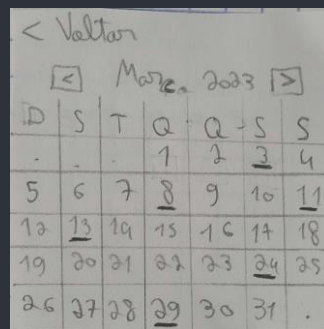 < Voltar
< Marc. 2023 >
D S T Q Q S S
. . . 1 2 3 4
5 6 7 8 9 10 11
12 13 14 15 16 17 18
19 20 21 22 23 24 25
26 27 28 29 30 31 .